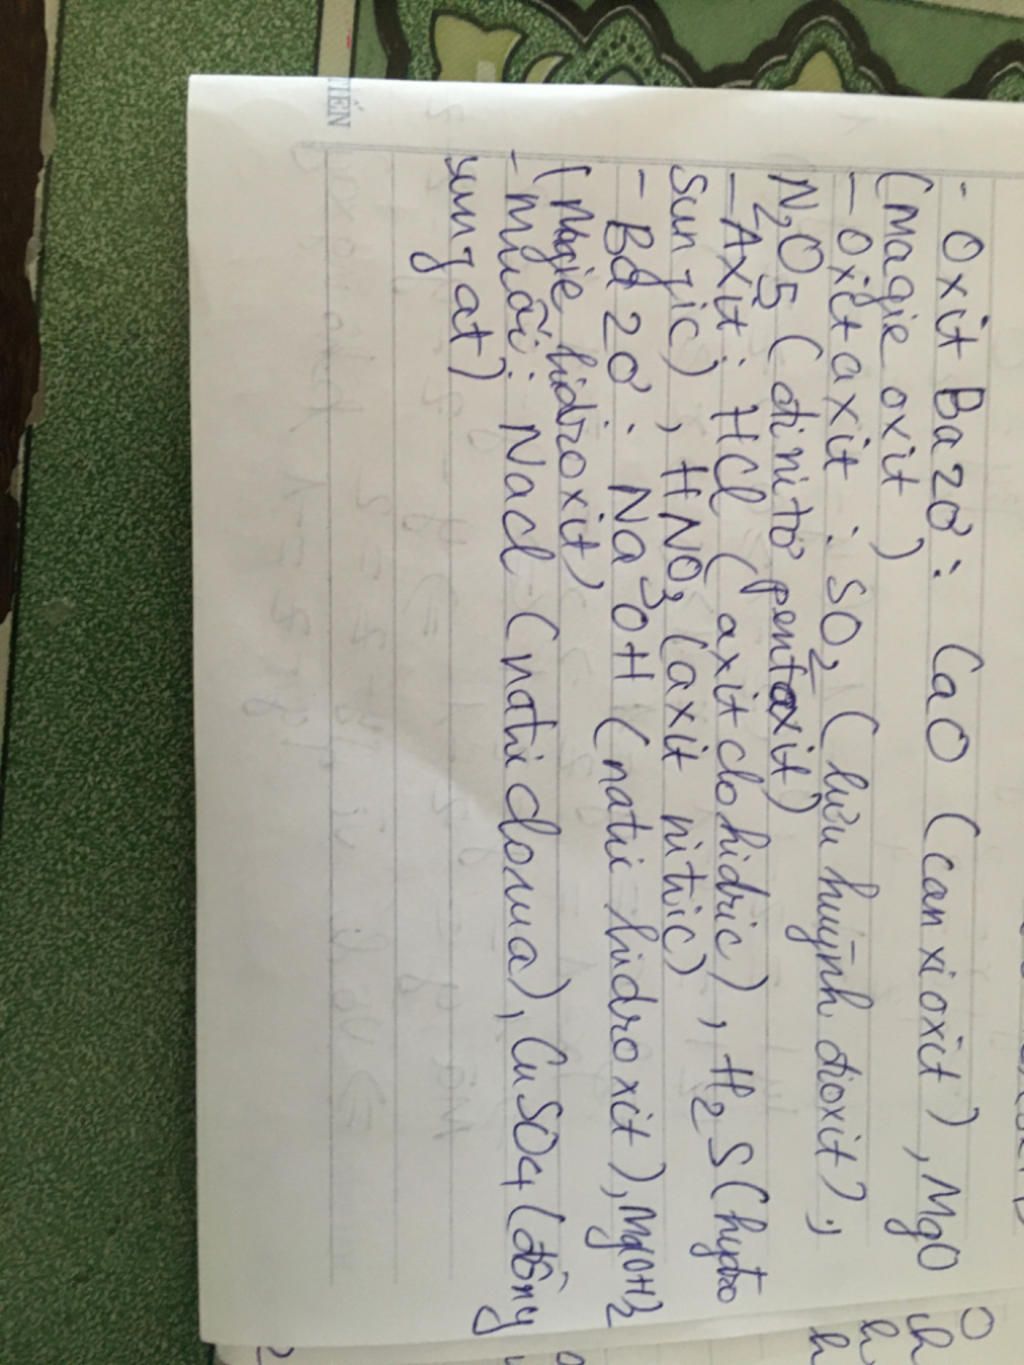 - Oxit Bazơ: CaO (canxioxit), MgO
(magie oxit)
- Oxit axit: SO2 (lưu huỳnh dioxit);
N2O5 (đinitơ pentaoxit)
- Axit: HCl (axit clohidric), H2S (hydro
sunfic), HNO3 (axit nitric)
- Bazơ: NaOH (natri hidroxit), Mg(OH)2
(Magie hidroxit)
- Muối: Nacl (natri clorua), CuSO4 (đồng
sunfat)
TIẾN